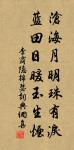 滄海月明珠有淚
藍田日暖玉生煙
李商隱錦瑟詩與典個集